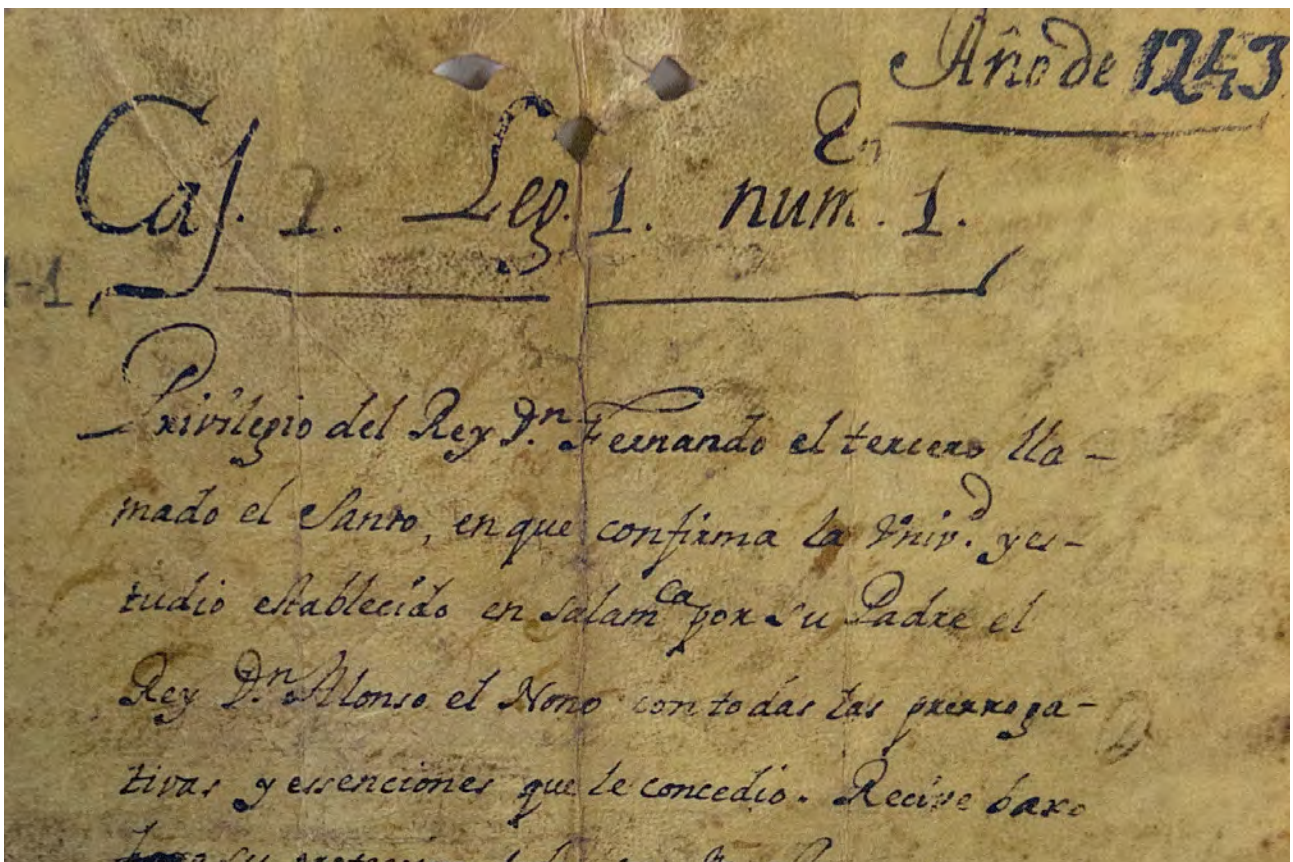 Año de 1243
En
Caj. 1. Leg. 1. num. 1.
-1,
Privilegio del Rey D.n Fernando el tercero lla-
mado el Santo, en que confirma la Vniv.d y es-
tudio establecido en Salam.ca por su Padre el
Rey D.n Alonso el Nono con todas las prerroga-
tivas y essenciones que le concedio. Recive baxo
su